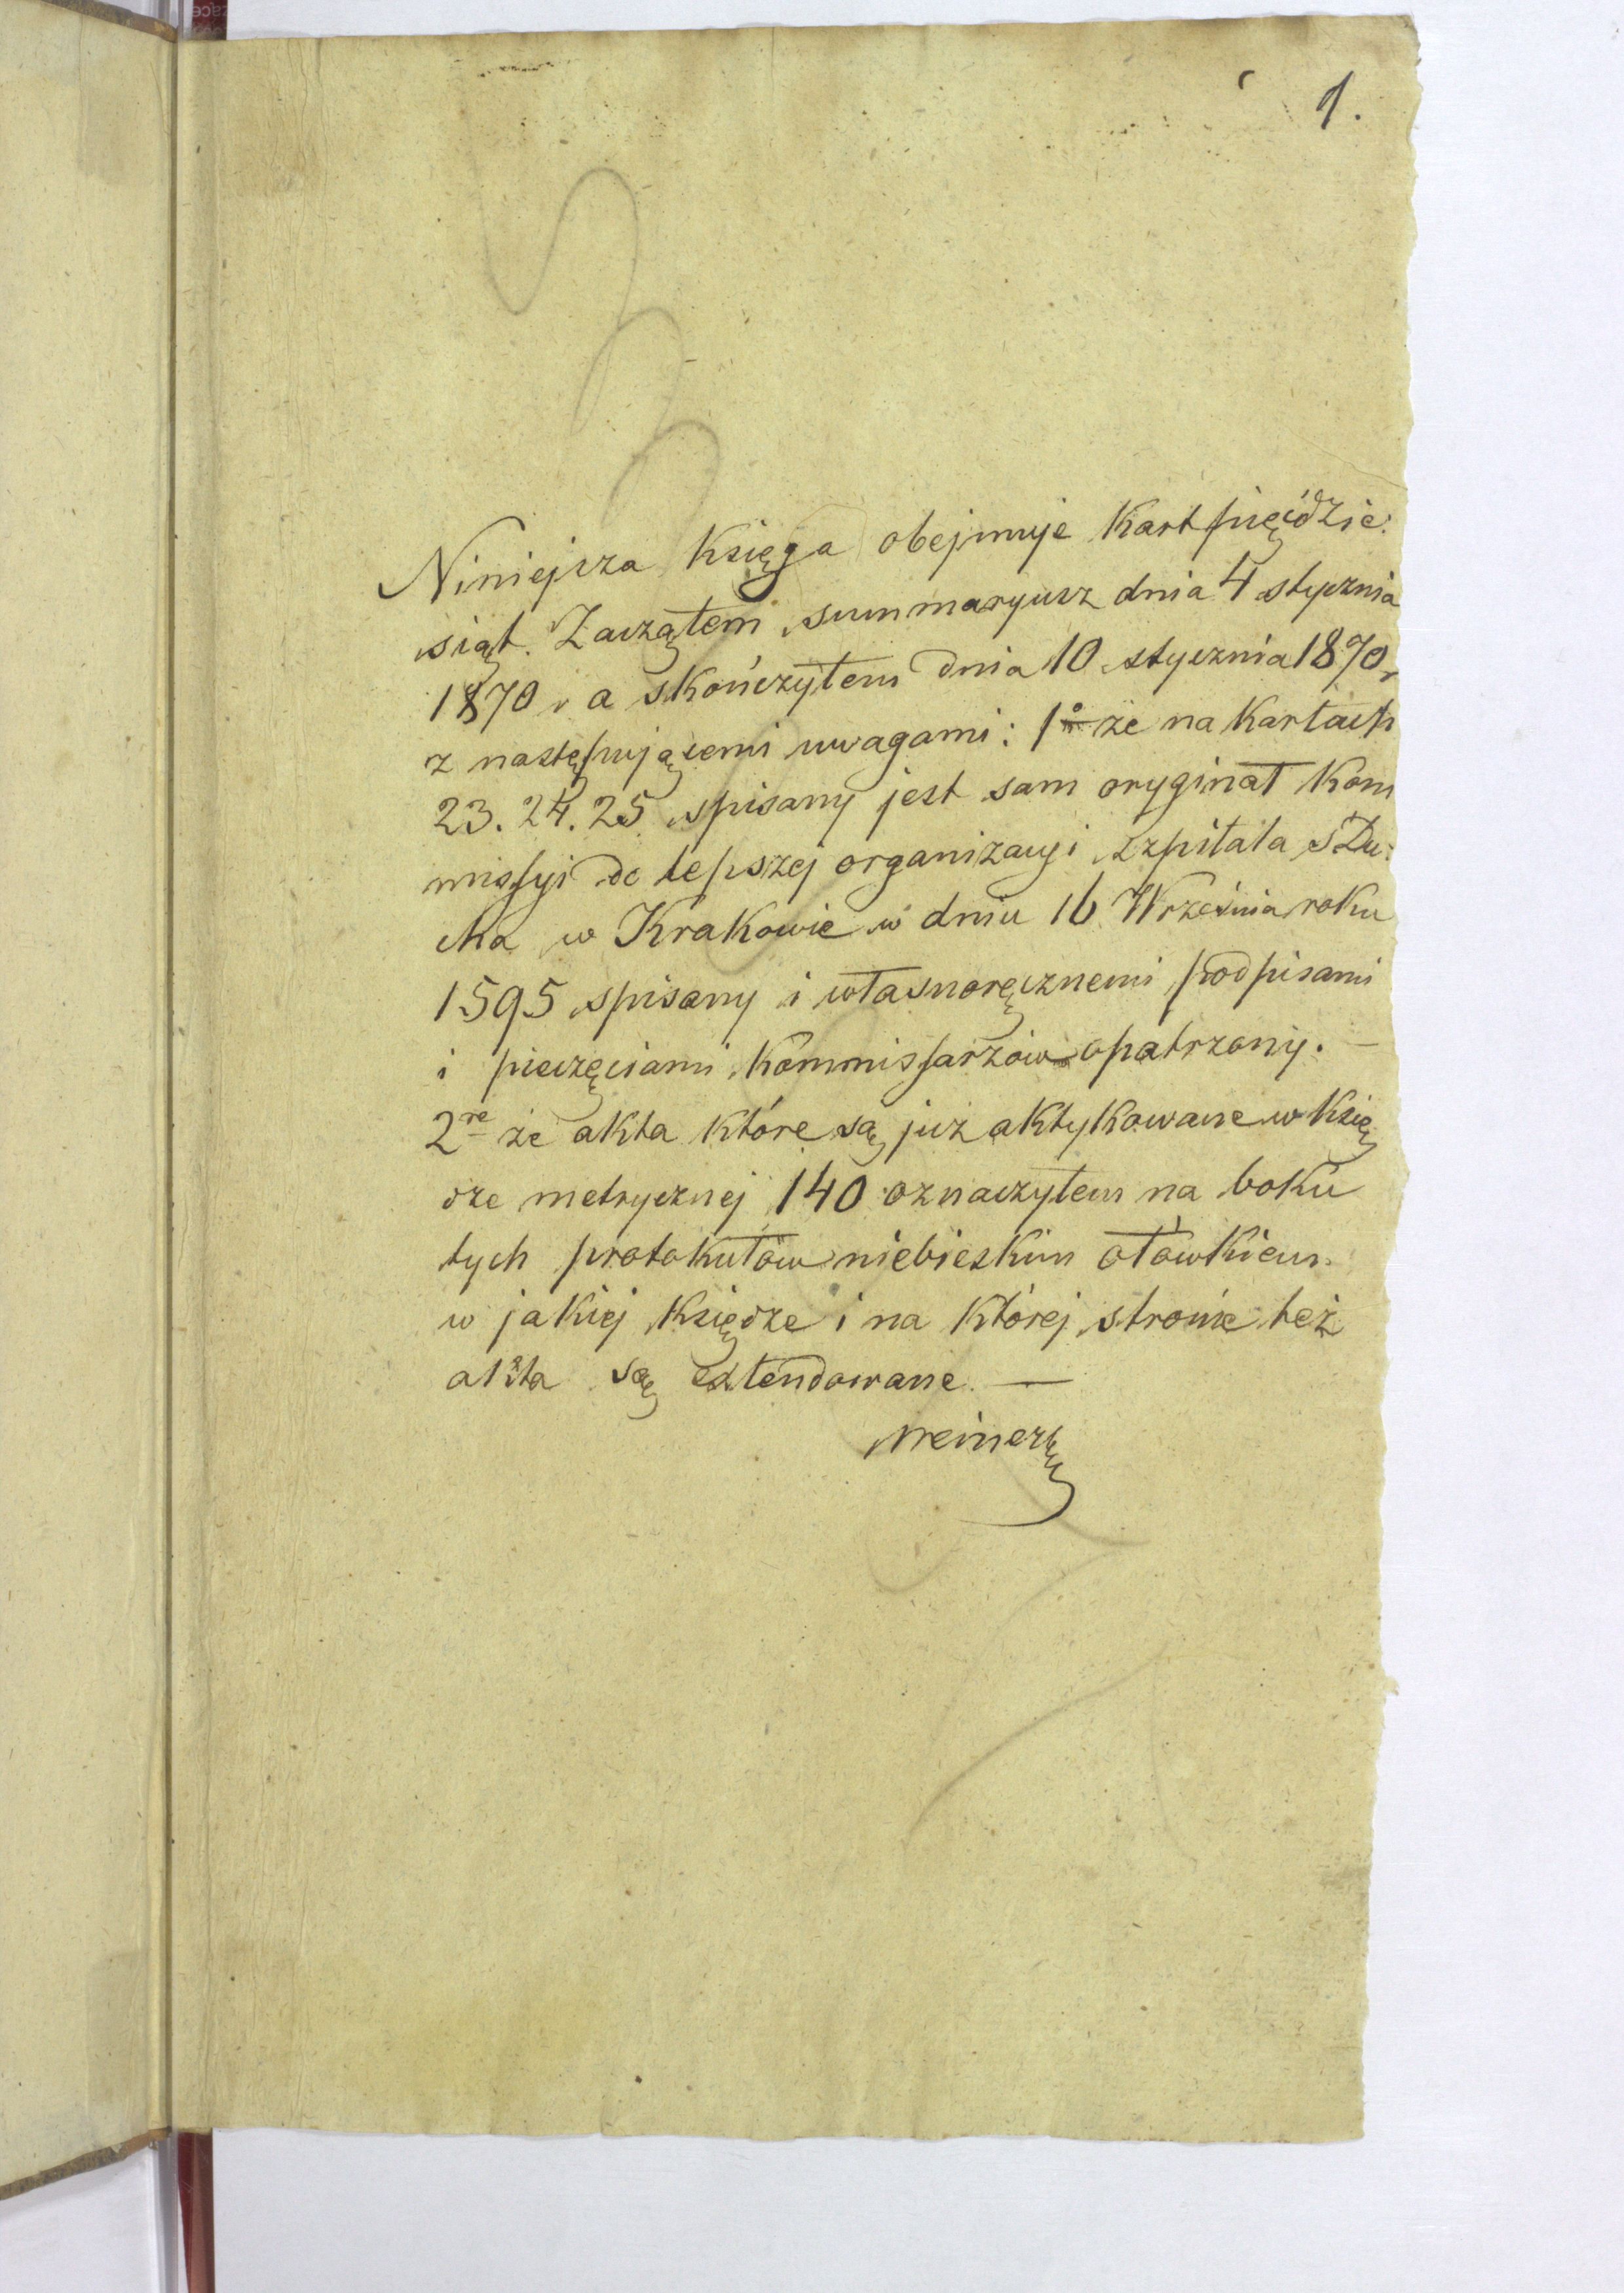 1.
Niniejsza Księga obejmuje Kart pięćdzie:
siąt. Zacząłem summaryusz dnia 4 stycznia
1870 r a skończyłem dnia 10 stycznia 1870 r
z następującemi uwagami: 1o że na Kartach
23. 24. 25 spisany jest sam oryginał Kom
missyi do lepszej organizacyi szpitala S Du:
cha w Krakowie w dniu 16 Września roku
1595 spisany i własnoręcznemi podpisami
i pieczęciami Kommissarzów opatrzony. —
2re że akta które są już aktykowane w Księ
dze metrycznej 140 oznaczyłem na boku
tych protokułów niebieskim ołówkiem
w jakiej Księdze i na której stronie też
akta są extendowane. —